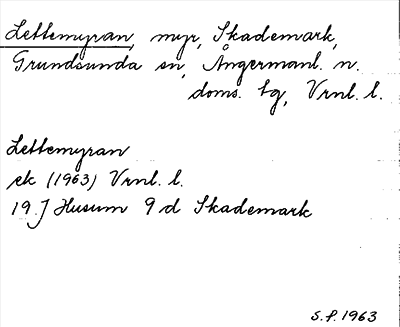 Lettemyran, myr, Skademark,
Grundsunda sn, Ångermanl. n.
doms. tg, Vrnl. l.
Lettemyran
ek (1963) Vrnl. l.
19 J Husum 9 d Skademark
S.F. 1963